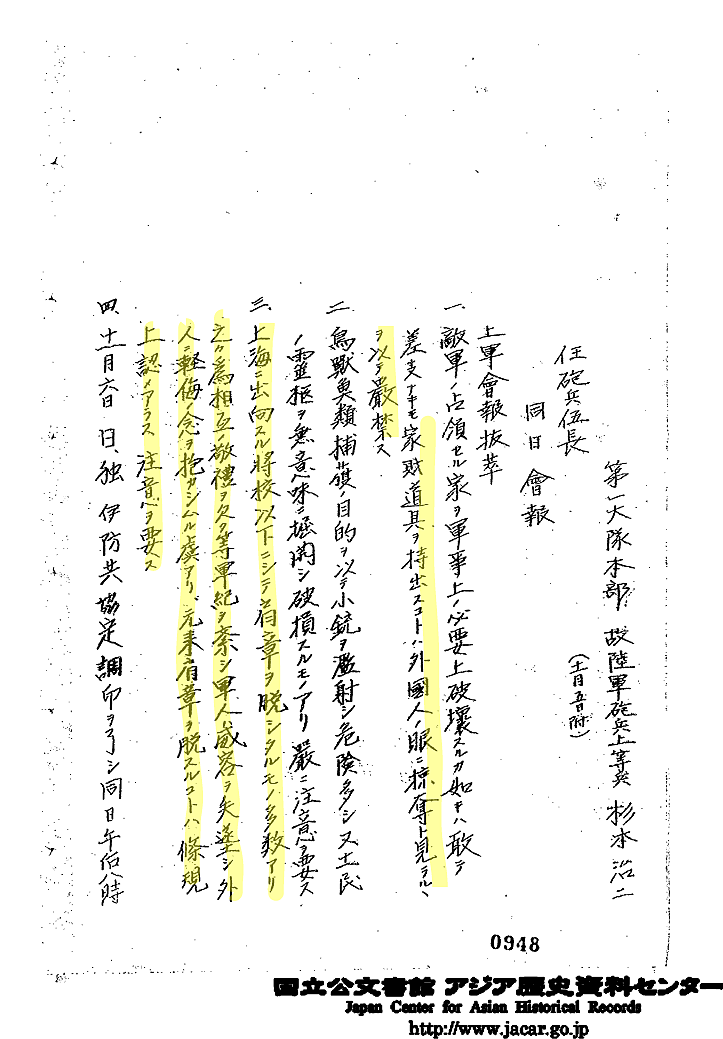 第一大隊本部 故陸軍砲兵上等兵 杉本治二
(十一月五日附)
任砲兵伍長
同日會報
上軍會報抜萃
一、敵軍ノ占領セル家ヲ軍事上ノ必要上破壊スルカ如キハ敢テ
差支ナキモ家財道具ヲ持出スコトハ外國人ノ眼ニ掠奪ト見ラルヽ
ヲ以テ嚴禁ス
二、鳥獸魚類捕獲ノ目的ヲ以テ小銃ヲ濫射シ危険多シ又土民
ノ靈柩ヲ無意味ニ堀開シ破損スルモノアリ嚴ニ注意ヲ要ス
三、上海ニ出向スル將校以下ニシテ肩章ヲ脱シタルモノ多数アリ
之カ爲相互ノ敬禮ヲ欠ク等軍紀ヲ紊シ軍人ノ威容ヲ失墜シ外
人ニ軽侮ノ念ヲ抱カシムル虞アリ元来肩章ヲ脱スルコトハ條規
上認メアラス注意ヲ要ス
四、十一月六日日、独伊防共協定調印ヲ了シ同日午后八時
0948
国立公文書館 アジア歴史資料センター
Japan Center for Asian Historical Records
http://www.jacar.go.jp